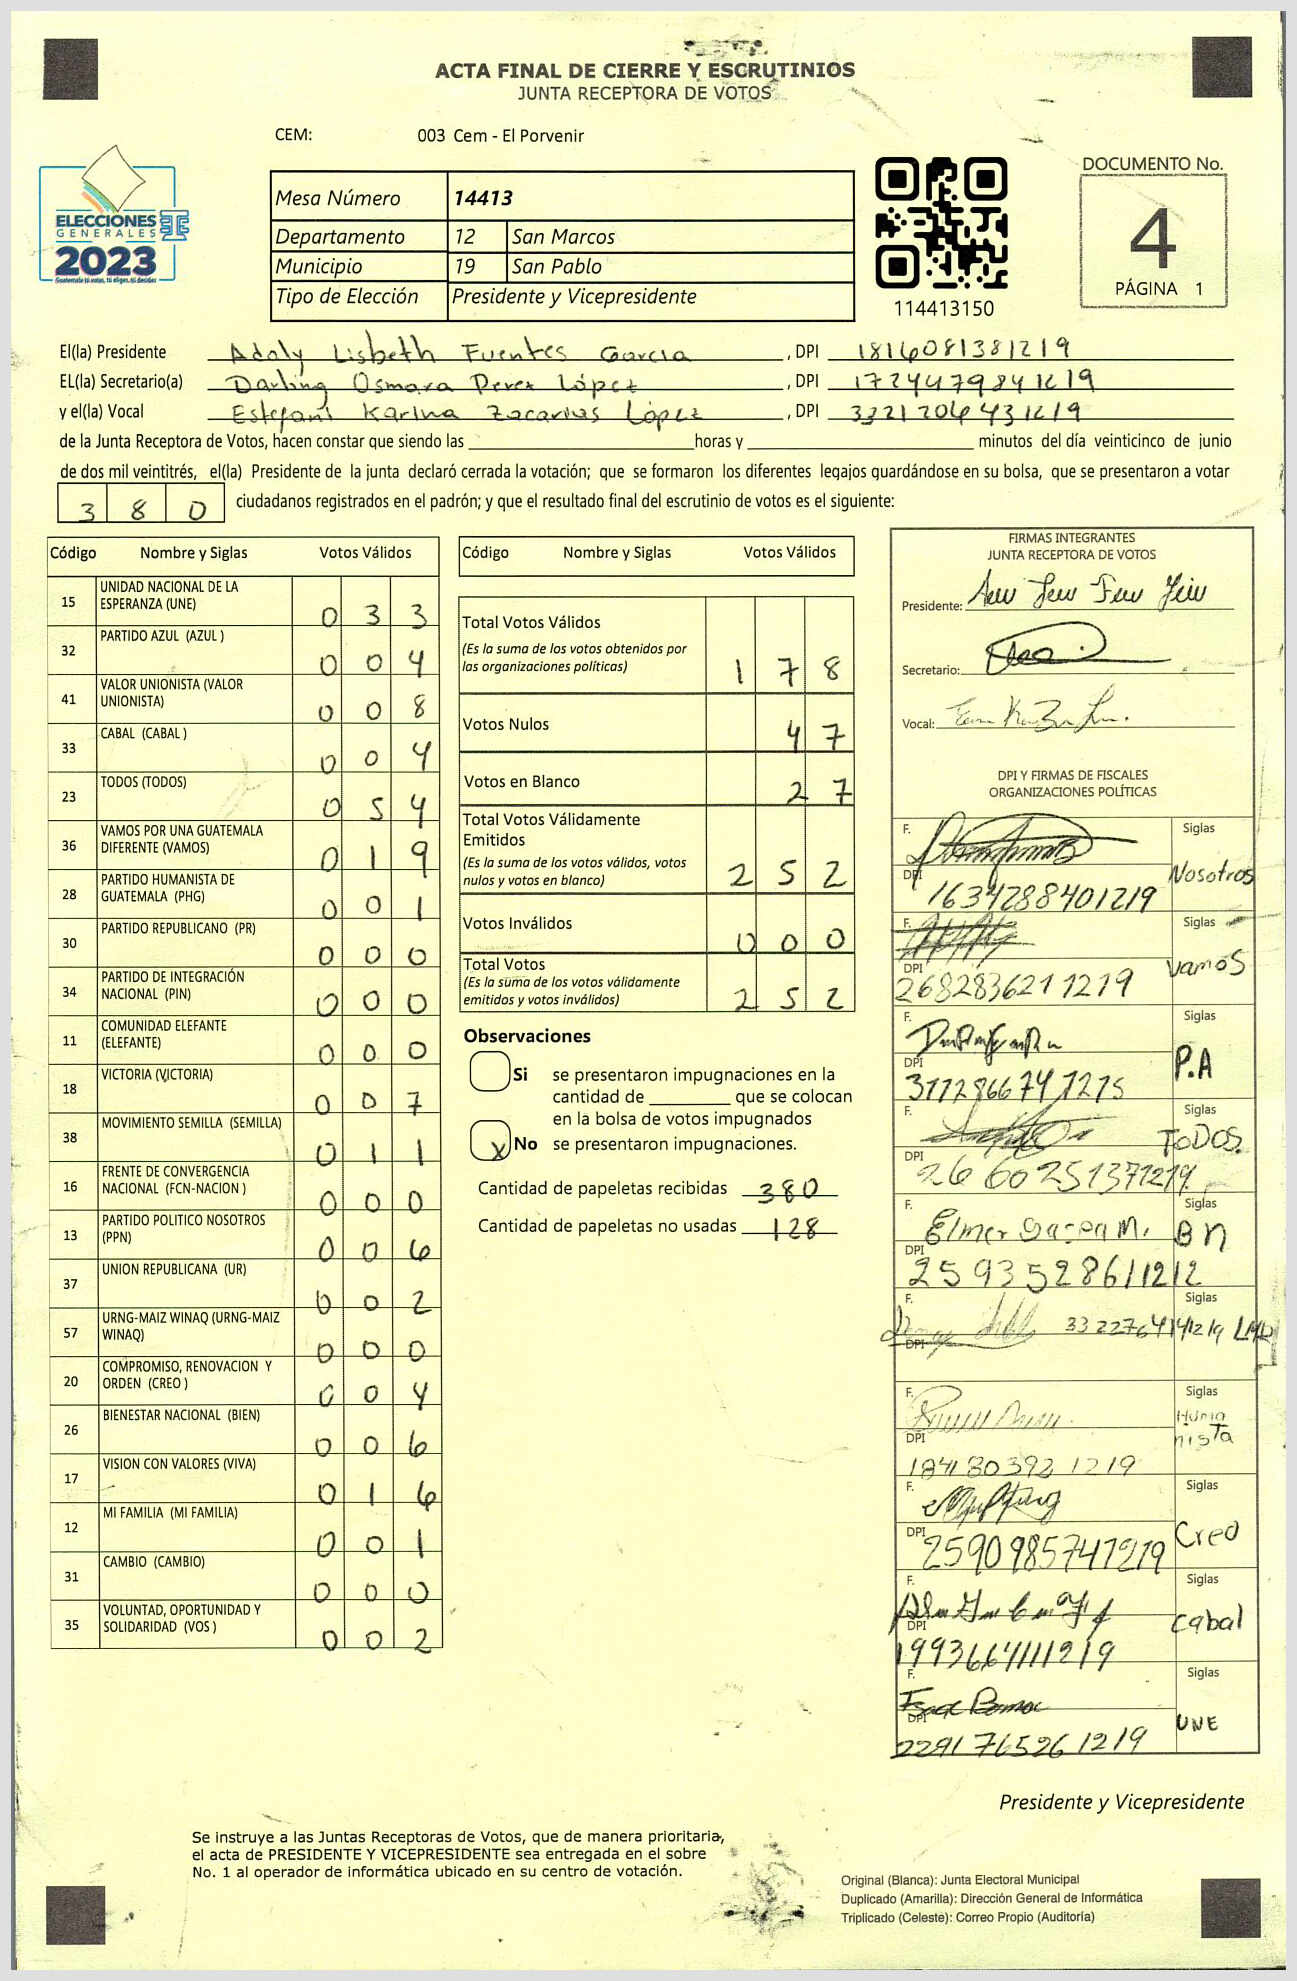 ACTA FINAL DE CIERRE Y ESCRUTINIOS
JUNTA RECEPTORA DE VOTOS
CEM: 003 Cem - El Porvenir
ELECCIONES
GENERALES
2023
Guatemala tú votas, tú eliges, tú decides
Mesa Número 14413
Departamento 12 San Marcos
Municipio 19 San Pablo
Tipo de Elección Presidente y Vicepresidente
114413150
DOCUMENTO No.
4
PÁGINA 1
El(la) Presidente Adaly Lisbeth Fuentes Garcia, DPI 1816081381219
EL(la) Secretario(a) Darling Osmara Perez López, DPI 1724479841219
y el(la) Vocal Estefani Karina Zacarias López, DPI 3321206431219
de la Junta Receptora de Votos, hacen constar que siendo las ____ horas y ____ minutos del día veinticinco de junio
de dos mil veintitrés, el(la) Presidente de la junta declaró cerrada la votación; que se formaron los diferentes legajos guardándose en su bolsa, que se presentaron a votar
380 ciudadanos registrados en el padrón; y que el resultado final del escrutinio de votos es el siguiente:
Código Nombre y Siglas Votos Válidos
15 UNIDAD NACIONAL DE LA ESPERANZA (UNE) 0 3 3
32 PARTIDO AZUL (AZUL ) 0 0 4
41 VALOR UNIONISTA (VALOR UNIONISTA) 0 0 8
33 CABAL (CABAL ) 0 0 4
23 TODOS (TODOS) 0 5 4
36 VAMOS POR UNA GUATEMALA DIFERENTE (VAMOS) 0 1 9
28 PARTIDO HUMANISTA DE GUATEMALA (PHG) 0 0 1
30 PARTIDO REPUBLICANO (PR) 0 0 0
34 PARTIDO DE INTEGRACIÓN NACIONAL (PIN) 0 0 0
11 COMUNIDAD ELEFANTE (ELEFANTE) 0 0 0
18 VICTORIA (VICTORIA) 0 0 7
38 MOVIMIENTO SEMILLA (SEMILLA) 0 1 1
16 FRENTE DE CONVERGENCIA NACIONAL (FCN-NACION ) 0 0 0
13 PARTIDO POLITICO NOSOTROS (PPN) 0 0 6
37 UNION REPUBLICANA (UR) 0 0 2
57 URNG-MAIZ WINAQ (URNG-MAIZ WINAQ) 0 0 0
20 COMPROMISO, RENOVACION Y ORDEN (CREO ) 0 0 4
26 BIENESTAR NACIONAL (BIEN) 0 0 6
17 VISION CON VALORES (VIVA) 0 1 6
12 MI FAMILIA (MI FAMILIA) 0 0 1
31 CAMBIO (CAMBIO) 0 0 0
35 VOLUNTAD, OPORTUNIDAD Y SOLIDARIDAD (VOS ) 0 0 2
Código Nombre y Siglas Votos Válidos
Total Votos Válidos 1 7 8
(Es la suma de los votos obtenidos por
las organizaciones políticas)
Votos Nulos 4 7
Votos en Blanco 2 7
Total Votos Válidamente
Emitidos 2 5 2
(Es la suma de los votos válidos, votos
nulos y votos en blanco)
Votos Inválidos 0 0 0
Total Votos 2 5 2
(Es la suma de los votos válidamente
emitidos y votos inválidos)
Observaciones
Si se presentaron impugnaciones en la
cantidad de ____ que se colocan
en la bolsa de votos impugnados
x No se presentaron impugnaciones.
Cantidad de papeletas recibidas 380
Cantidad de papeletas no usadas 128
FIRMAS INTEGRANTES
JUNTA RECEPTORA DE VOTOS
Presidente:
Secretario:
Vocal:
DPI Y FIRMAS DE FISCALES
ORGANIZACIONES POLÍTICAS
F. Siglas
DPI 1634288401219 Nosotros
F. Siglas
DPI 2682836211219 Vamos
F. Siglas
DPI P.A
F. Siglas
DPI 2660251371219 ToDOS.
F. Elmer M. Siglas
DPI 2593528611212 Bn
F. Siglas
DPI
F. Siglas
DPI 1841803921219 Humanista
F. Siglas
DPI 2590985741219 Creo
F. Siglas
DPI 1993664111219 Cabal
F. Siglas
DPI 2291765261219 UNE
Presidente y Vicepresidente
Se instruye a las Juntas Receptoras de Votos, que de manera prioritaria,
el acta de PRESIDENTE Y VICEPRESIDENTE sea entregada en el sobre
No. 1 al operador de informática ubicado en su centro de votación.
Original (Blanca): Junta Electoral Municipal
Duplicado (Amarilla): Dirección General de Informática
Triplicado (Celeste): Correo Propio (Auditoría)